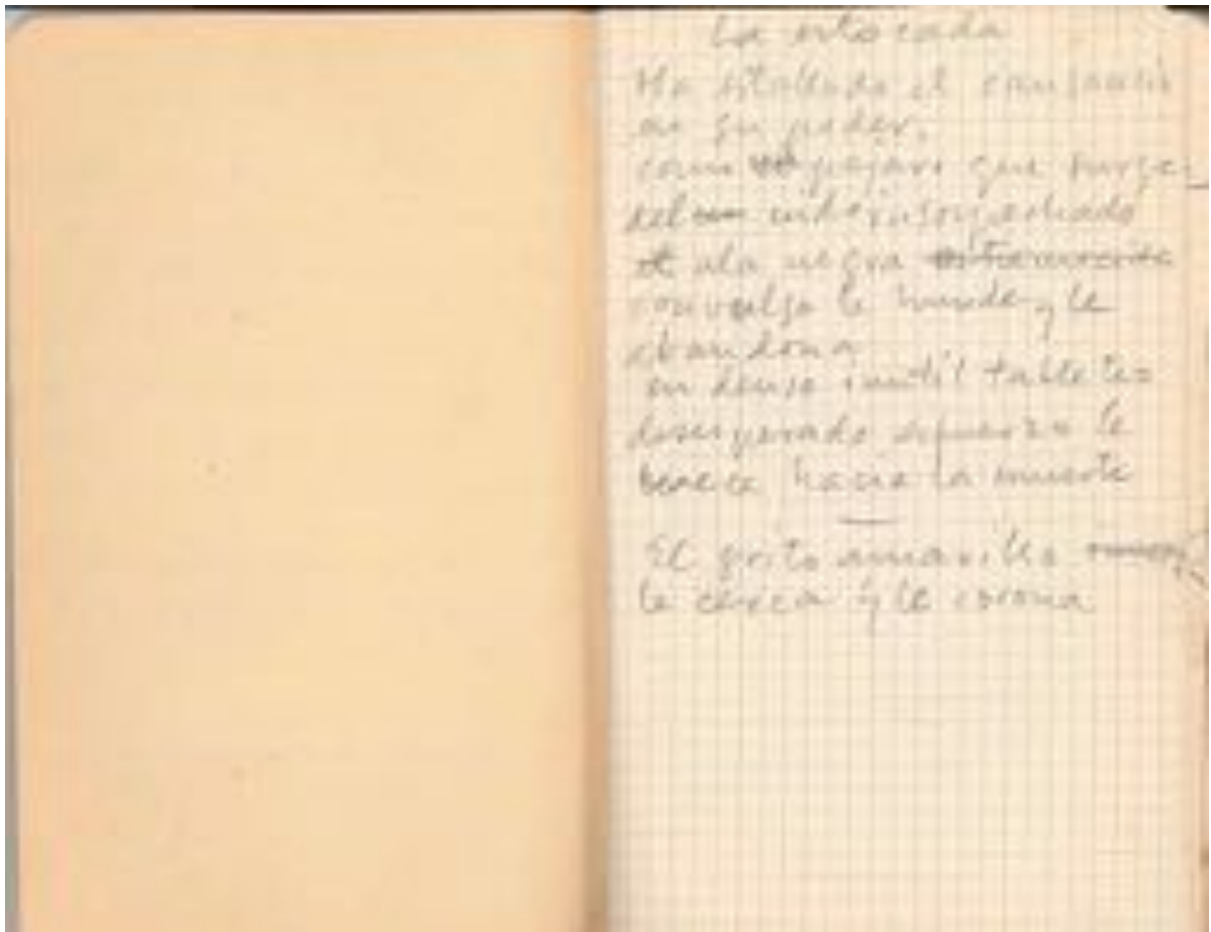 La estocada
Ha estallado el cansancio
en su poder.
como pájaro que surge
del
ala negra
convulso le hunde y le
abandona
en denso inutil
desesperado esfuerzo le
hacia la muerte
El grito amarillo
le cerca y le corona